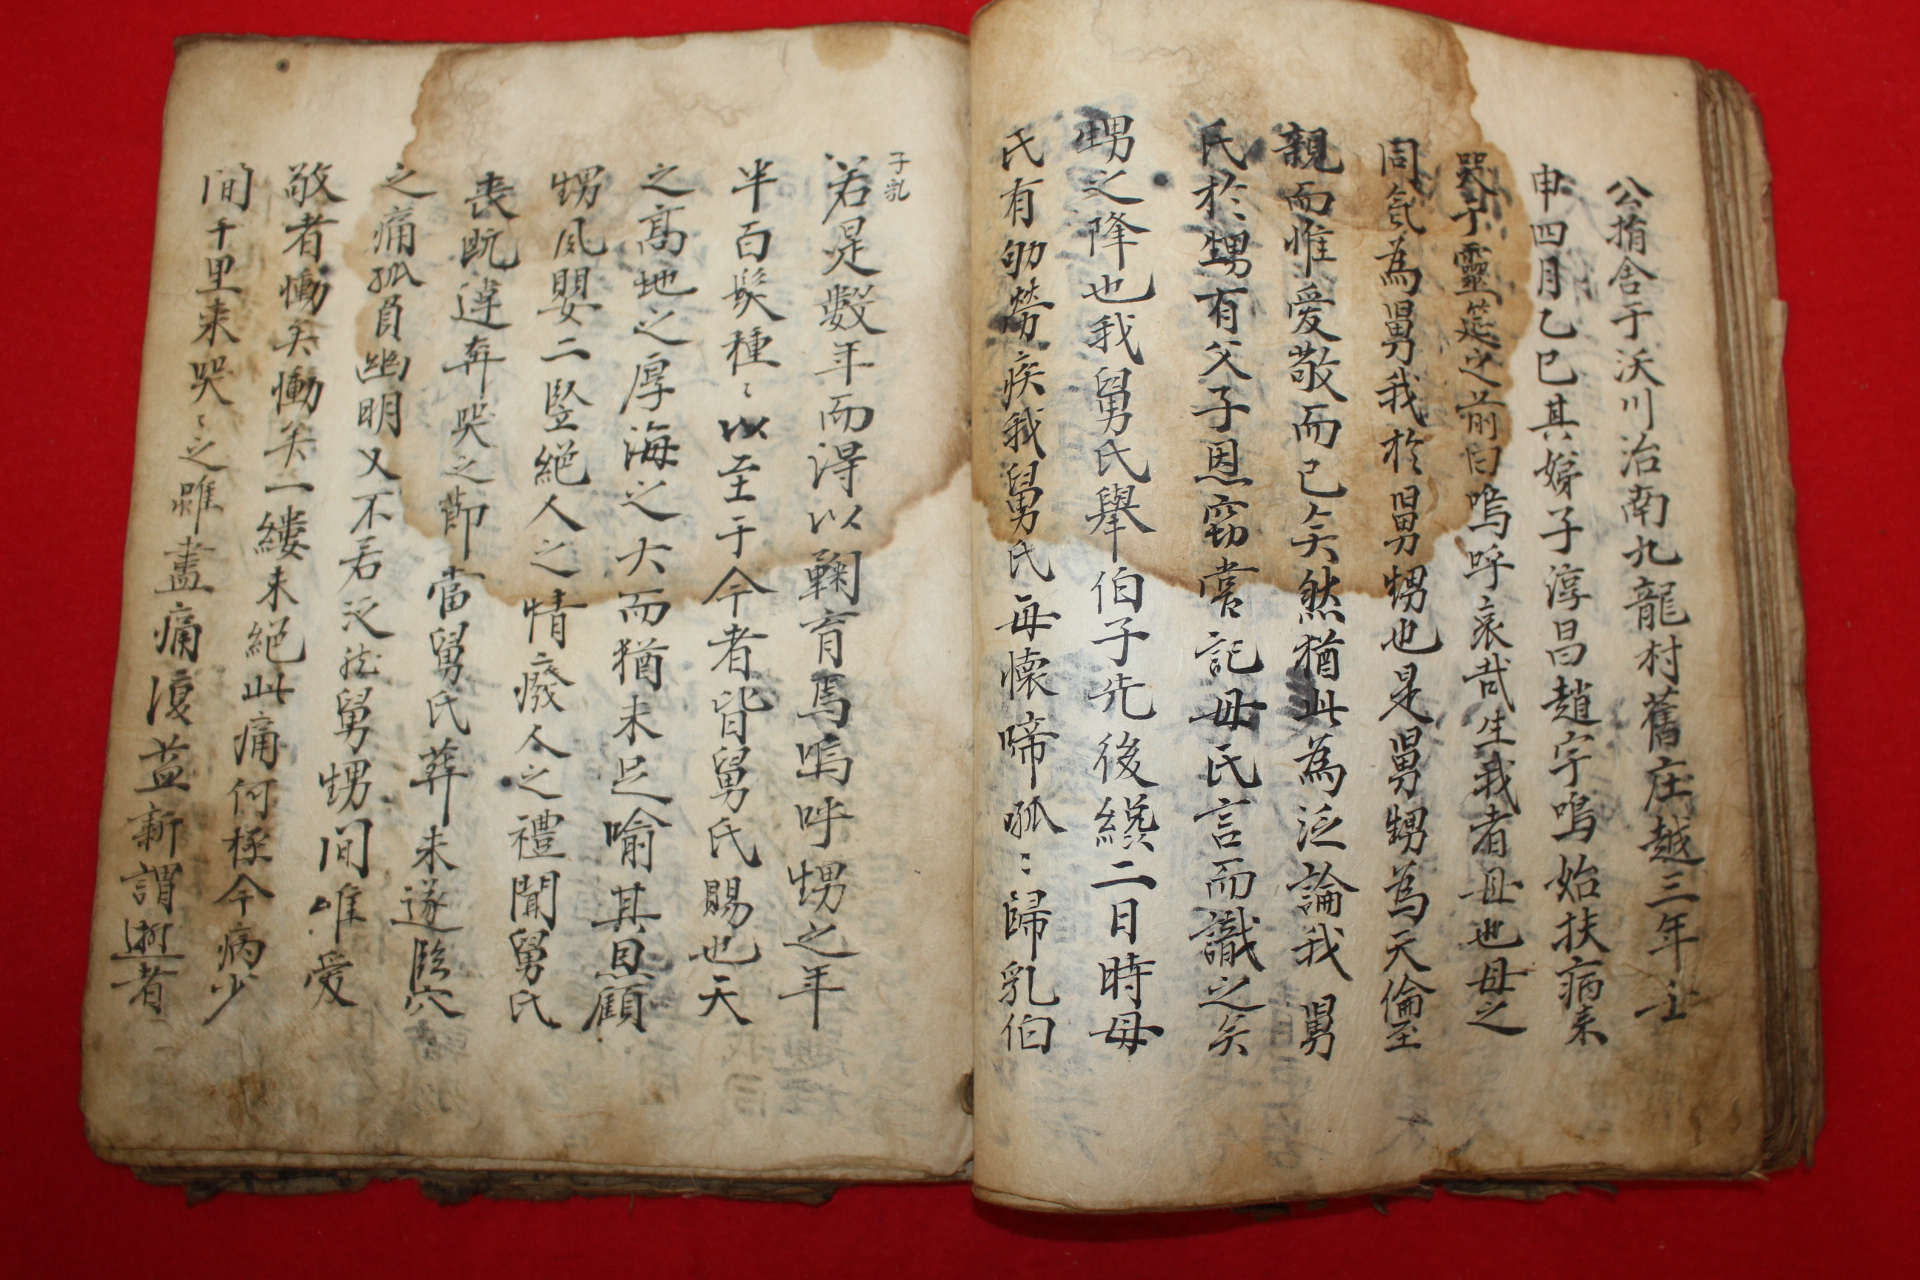 公捐舍于沃川治南九龍村舊庄越三年壬
申四月乙巳其娣子淳昌趙宇鳴始扶病来
哭于靈筵之前曰嗚呼哀哉生我者母也母之
同氣為舅我於舅甥也是舅甥為天倫至
親而惟愛敬而已矣然猶此為泛論我舅
氏於甥有父子恩窃嘗記母氏言而識之矣
甥之降也我舅氏舉伯子先後纔二日時母
氏有劬勞疾我舅氏毎懷啼呱〻歸乳伯
子乳
若是數年而得以鞠育焉嗚呼甥之年
半百髮種〻以至于今者皆舅氏賜也天
之高地之厚海之大而猶未足喻其恩顧
甥夙嬰二竪絕人之情廢人之禮聞舅氏
喪旣違奔哭之節當舅氏葬未遂臨穴
之痛孤負幽明又不若泛然舅甥間唯愛
敬者慟矣慟矣一縷未絕此痛何極今病少
間千里来哭〻之雖盡痛復益新謂逝者